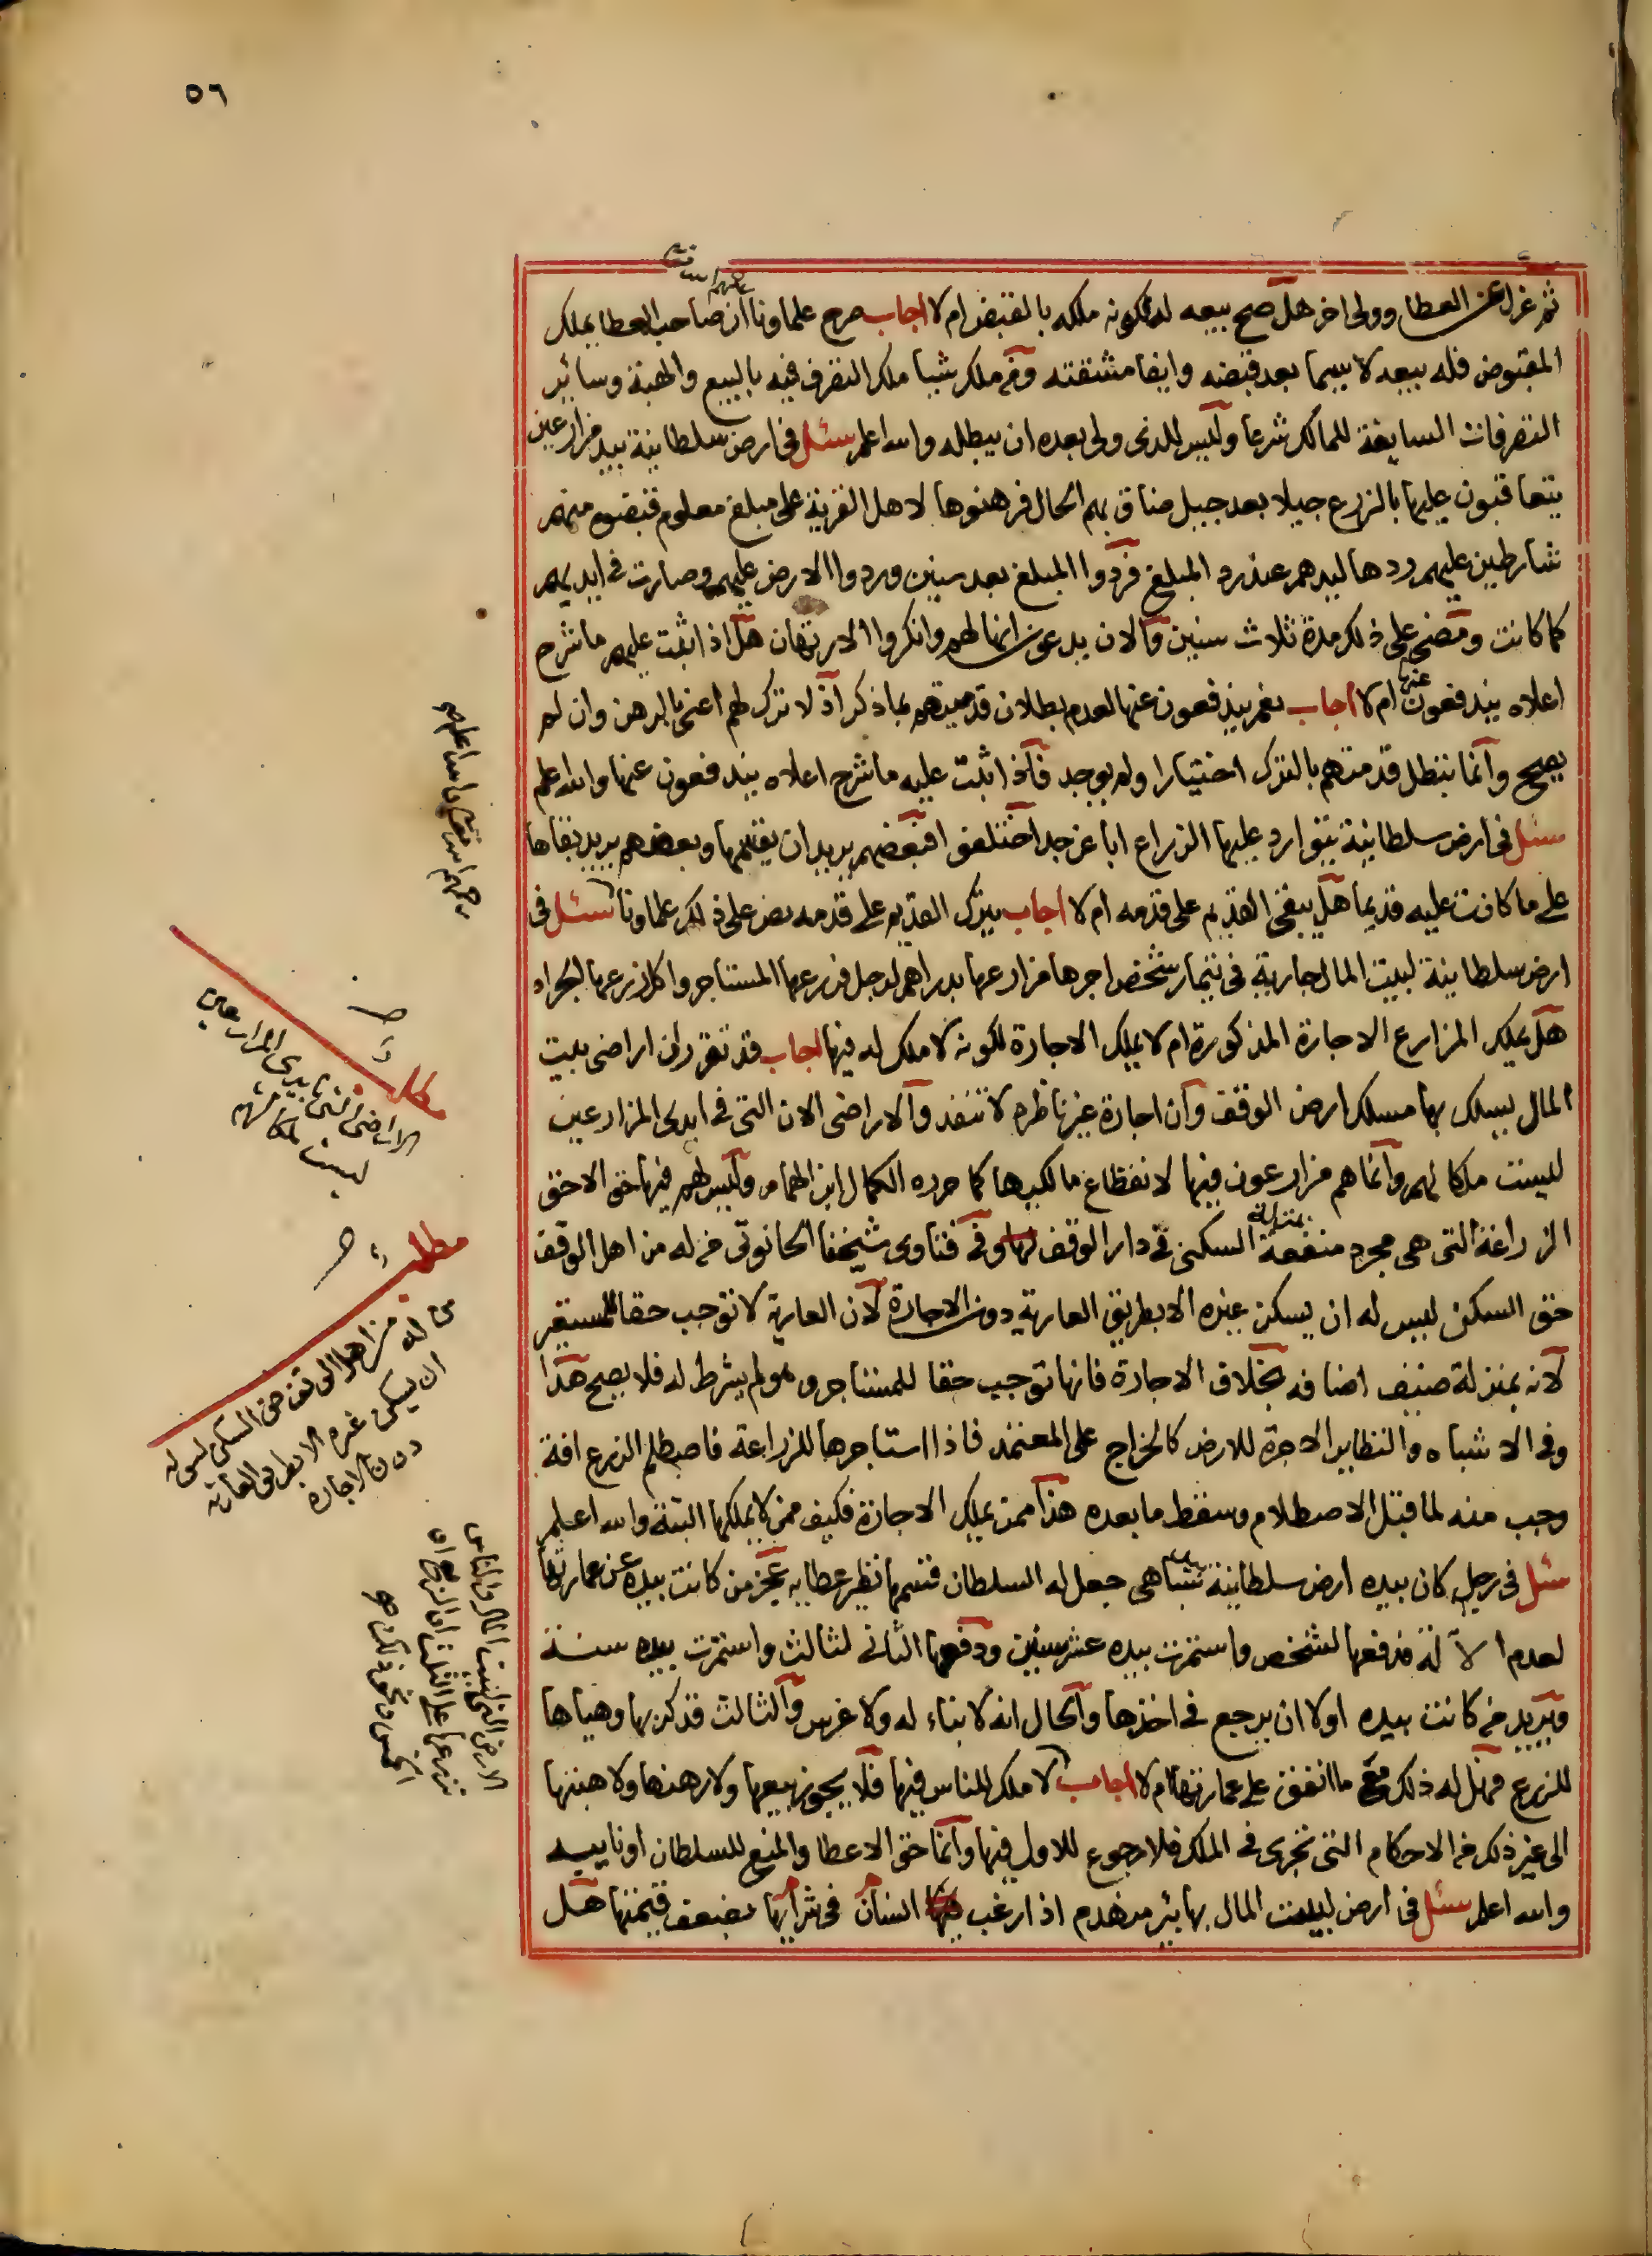 ٥٦
ثم عزل عن العطا وولى اخر هل صح بيعه لذلك لكونه ملكه بالقبض ام لا اجاب صرح علماونا ان صاحب العطا يملك
المقبوض فله بيعه لا سيما بعد قبضه وايفا مشقته ومن ملك شيا ملك التصرف فيه بالبيع والهبة وساير
التصرفات السايغة للمالك شرعا وليس للذى ولى بعده ان يبطله والله اعلم سئل فى ارض سلطانية بيد مزارعين
يتعاقبون عليها بالزرع جيلا بعد جيل ضاق بهم الحال فرهنوها لاهل القرية على مبلغ معلوم قبضوه منهم
شارطين عليهم ردها ليدهم عند رد المبلغ فردوا المبلغ بعد سنين وردوا الارض عليهم وصارت فى ايديهم
كما كانت ومضى على ذلك مدة ثلاث سنين والان يدعون انها لهم وانكروا الارتهان هل اذا ثبت عليهم ما شرح
اعلاه يندفعون عنها ام لا اجاب نعم يندفعون عنها لعدم بطلان قدميتهم بما ذكر اذ لا ترك لهم اعنى بالرهن وان لم
يصح وانما تبطل قدمتهم بالترك اختيارا ولم يوجد فاذا ثبت عليه ما شرح اعلاه يندفعون عنها والله اعلم
سئل فى ارض سلطانية يتوارد عليها الزراع ابا عن جد اختلفوا فبعضهم يريد ان يقسمها وبعضهم يريد بقاها
على ما كانت عليه قديما هل يبقى القديم على قدمه ام لا اجاب يترك القديم على قدمه نص على ذلك علماونا سئل فى
ارض سلطانية لبيت المال جارية فى تيمار شخص اجرها مزارعها بدراهم لرجل فزرعها المستاجر واكل زرعها الجراد
هل يملك المزارع الاجارة المذكورة ام لا يملك الاجارة لكونه لا ملك له فيها اجاب قد تقرر ان اراضى بيت
المال يسلك بها مسلك ارض الوقف وان اجارة غير ناظره لا تنفذ والاراضى الان التى فى ايدى المزارعين
ليست ملكا لهم وانما هم مزارعون فيها لانقطاع مالكيها كما حرره الكمال ابن الهمام وليس لهم فيها حق الا حق
الزراعة التى هى مجرد منفعة بمنزلة السكنى فى دار الوقف وفى فتاوى شيخنا الحانوتى من له من اهل الوقف
حق السكنى ليس له ان يسكن غيره الا بطريق العارية دون الاجارة لان العارية لا توجب حقا للمستعير
لانه بمنزلة ضيف اضافه بخلاف الاجارة فانها توجب حقا للمستاجر وهو لم يشرط له فلا يصح هذا
وفى الاشباه والنظاير الاجرة للارض كالخراج على المعتمد فاذا استاجرها للزراعة فاصطلم الزرع افة
وجب منه لما قبل الاصطلام وسقط ما بعده هذا ممن يملك الاجارة فكيف ممن لا يملكها البتة والله اعلم
سئل فى رجل كان بيده ارض سلطانية جعل له السلطان قسمها نظير عطايه عجز من كانت بيده عن عمارتها
لعدم الالة فدفعها لشخص واستمرت بيده عشر سنين ودفعها الثانى لثالث واستمرت بيده سنة
ويريد من كانت بيده اولا ان يرجع فى اخذها والحال انه لا بناء له ولا غرس والثالث قد كربها وهياها
للزرع فهل له ذلك مع ما انفق على عمارتها ام لا اجاب لا ملك للناس فيها فلا يجوز بيعها ولا رهنها ولا هبتها
الى غير ذلك من الاحكام التى تجرى فى الملك فلا رجوع للاول فيها وانما حق الاعطا والمنع للسلطان او نايبه
والله اعلم سئل فى ارض لبيت المال بها بئر منهدم اذا رغب انسان فى شرايها بضعف قيمتها هل
مطلب
الاراضى التى بايدى المزارعين
ليست ملكا لهم
مطلب
من له من اهل الوقف حق السكنى ليس له
ان يسكن غيره الا بطريق العارية
دون الاجارة